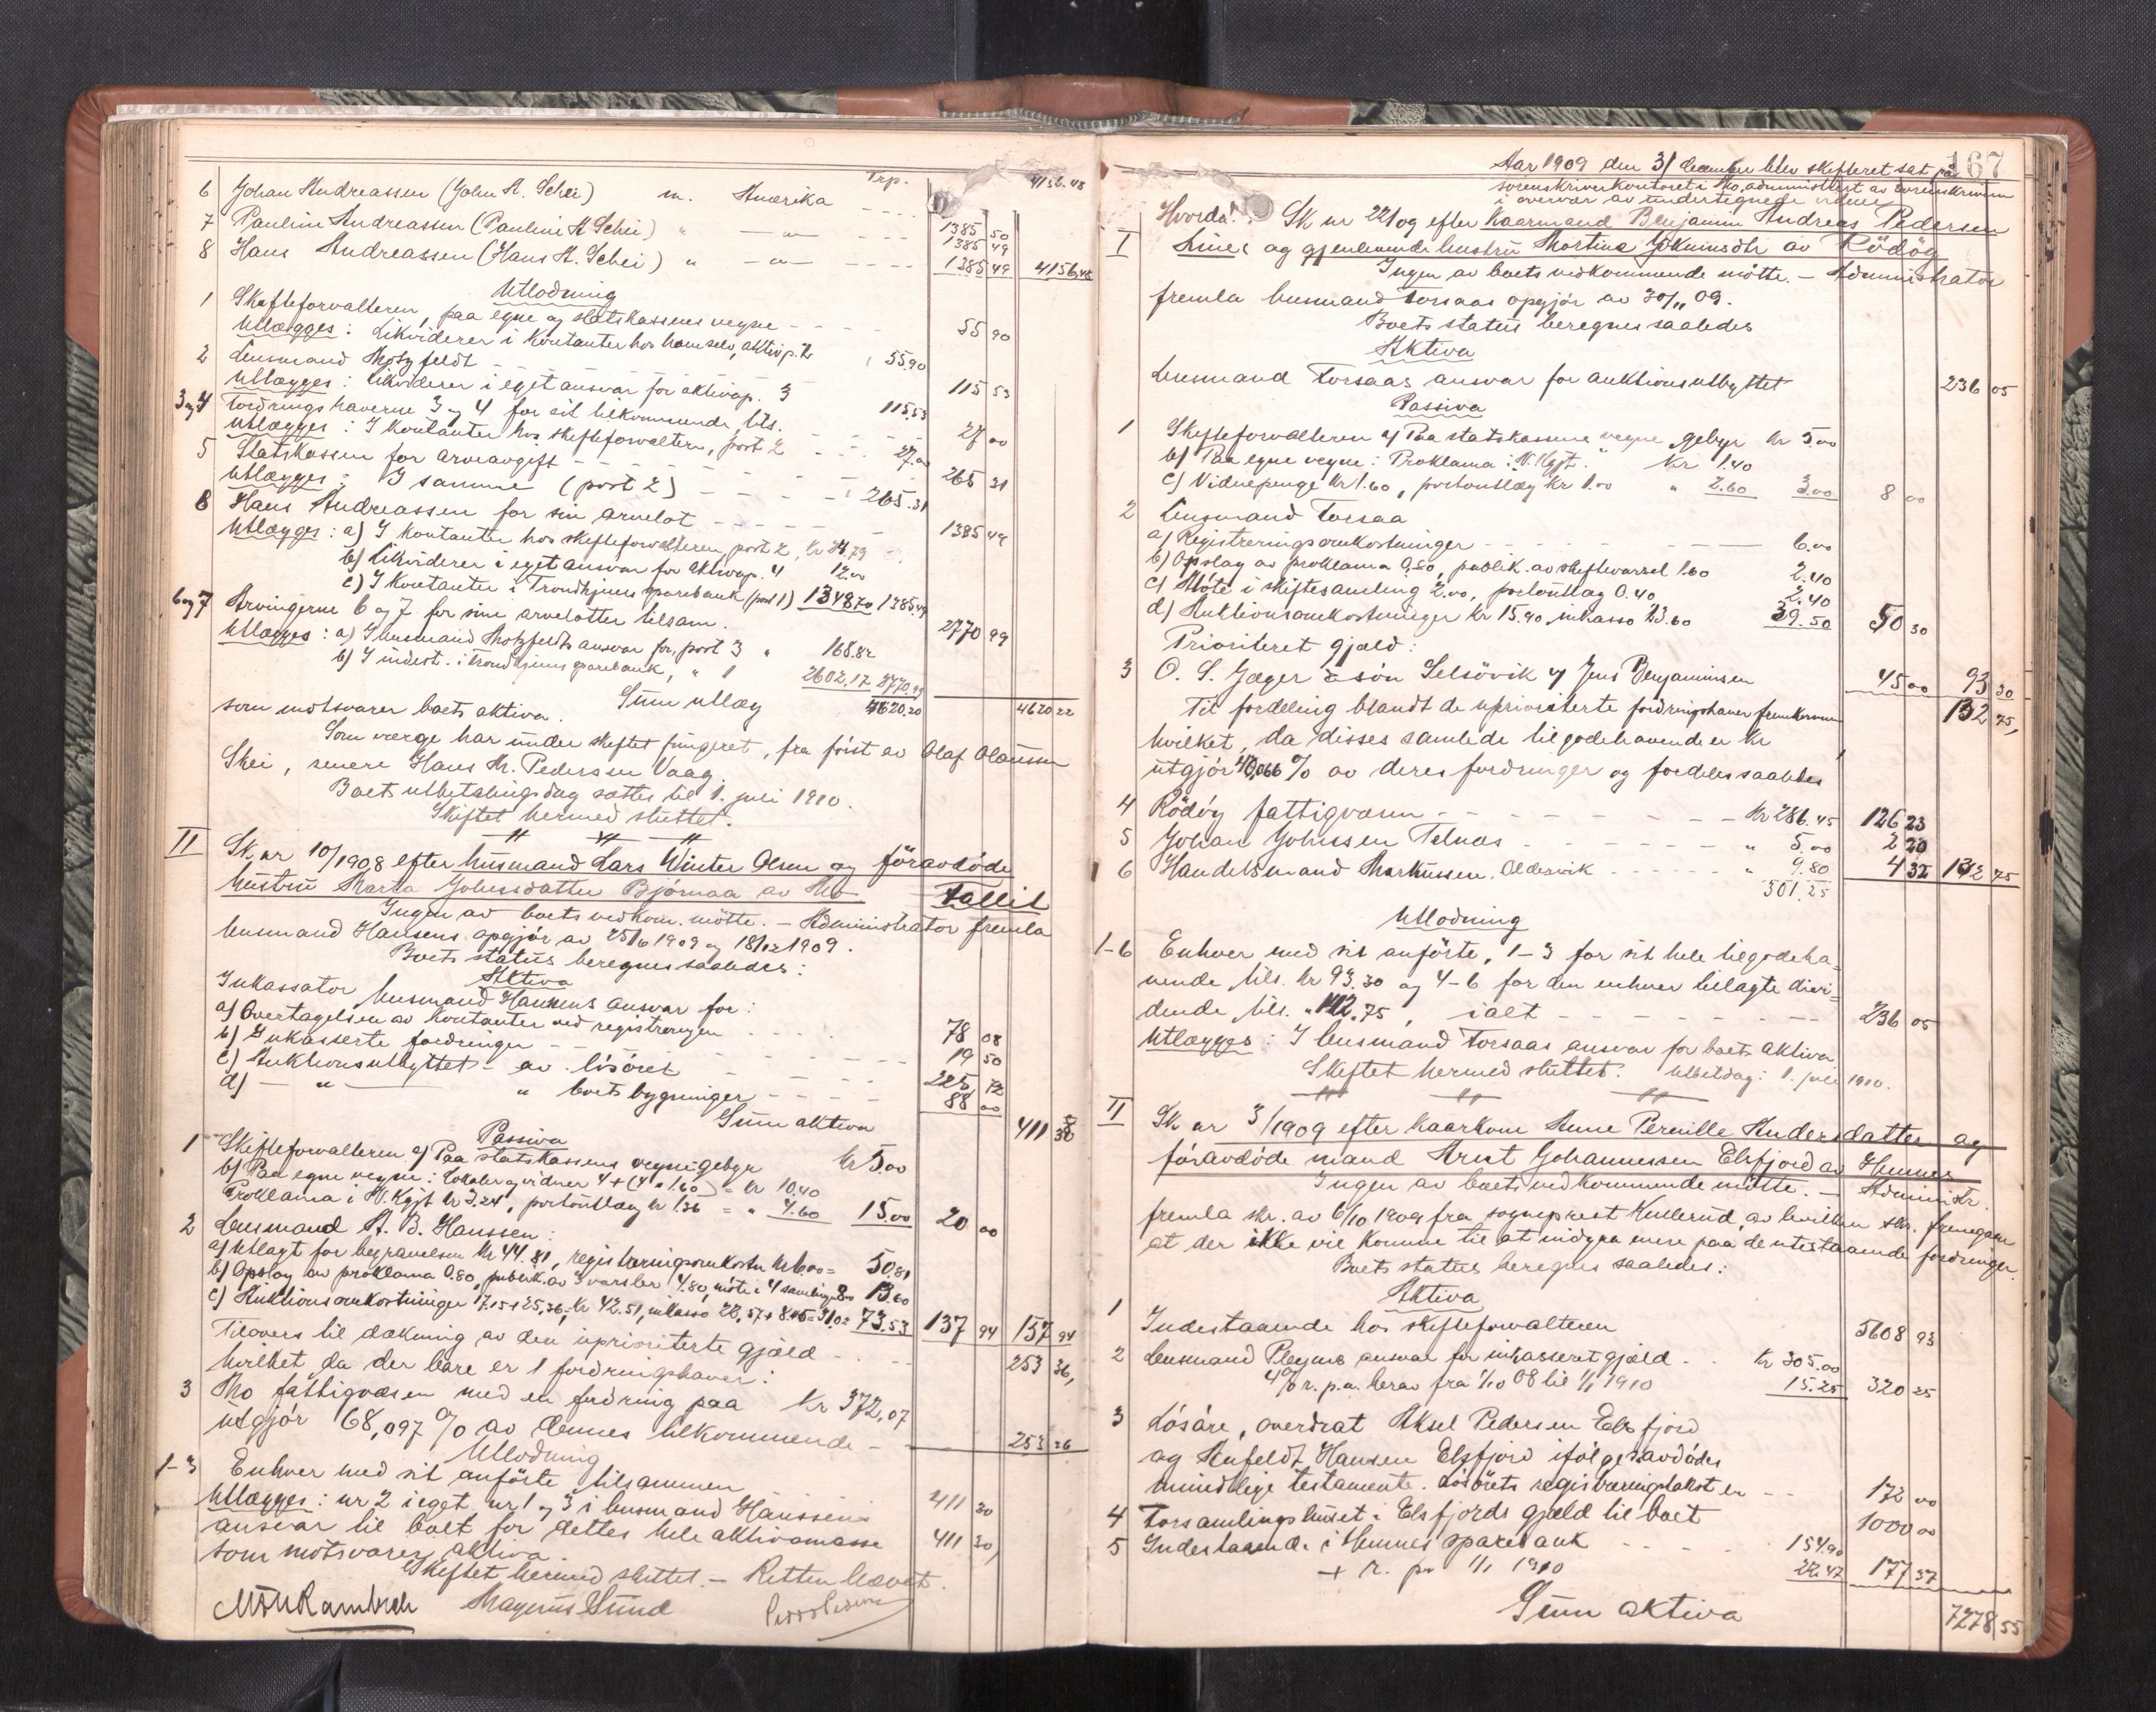 Trp. 4156.48
6 Johan Andreassen (John A. Schei) m. Amerika
7 Pauline Andreassen (Pauline A Schei) " — " — 1385 50
1385 49
8 Hans Andreassen (Hans A. Schei) " — " — 1385 49 4156.48
Utlodning
1 Skifteforvalteren, paa egne og statskassens vegne 55 90
Utlægges: Likviderer i kontanter hos ham selv, aktivp. 2 55.90
2 Lensmand Motzfeldt 115 53
Utlægges: likviderer i eget ansvar for aktivap. 3 115.53
3 og 4 Fordringshaverne 3 og 4 for sit tilkommende, tils. 27 00
Utlægges: I kontanter hos skifteforvalteren, post 2 27.00
5 Statskassen for arveavgift 265 31
Utlægges: I samme (post 2) 265.31
8 Hans Andreassen for sin arvelot 1385 49
Utlægges: a) I kontanter hos skifteforvalteren, post 2, kr 24.79
b) Likviderer i eget ansvar for aktivap. 4 12.00
c) I kontanter i Trondhjems sparebank (post 1) 1348.70 1385.49
6 og 7 Arvingerne 6 og 7 for sine arvelotter tilsam. 2770 99
Utlægges: a) I lensmand Motzfeldts ansvar for, post 3 " 168.82
b) I indest. i Trondhjems sparebank, " 1 2602.17 2770.99
Sum utlæg 4620.20 4620 22
som motsvarer boets aktiva.
Som verge har under skiftet fungeret, fra først av Olaf Olaussen
Skei, senere Hans M. Pedersen Vaag.
Boets utbetalingsdag sættes til 1. juli 1910.
Skiftet hermed sluttet.
II Sk nr 10/1908 efter husmand Lars Winter Olsen og føravdøde
hustru Marta Johnsdatter Bjørnaa av Mo Fallit
Ingen av boets vedkom. møtte. – Administrator fremla
lensmand Hansens opgjør av 25/6 1909 og 18/12 1909.
Boets status beregnes saaledes:
Aktiva
Inkassator lensmand Hansens ansvar for:
a) Overtagelsen av kontanter ved registreringen 78 08
b) Inkasserte fordringer 19 50
c) Auktionsutbyttet av løsøret 225 72
d) — " — " boets bygninger 88 00
Sum aktiva 411 30
Passiva
1 Skifteforvalteren a) Paa statskassens vegne: gebyr kr 5.00
b) Paa egne vegne: Lokaler og vidner 4 + (4 x 1.60) = kr 10.40
Proklama i N. Kgjt kr 3.24, portoutlæg kr 1.36 = " 4.60 15.00 20 00
2 Lensmand A. B. Hanssen:
a) Utlagt for begravelsen kr 44.81, registreringsomkostn kr 6.00 = 50.81
b) Opslag av proklama 0.80, publik. av 3 varsler 4.80, møte i 4 samlinger 8.00 13.60
c) Auktionsomkostninger 17.15 + 25.36 = kr 42.51, inkasso 22.57 + 8.45 = 31.02 = 73.53 137 94 157 94
Tilovers til dækning av den uprioriterte gjæld 253 36,
hvilket, da der bare er 1 fordringshaver:
3 Mo fattigvæsen med en fordring paa kr 372,07
utgjør 68,097 % av dennes tilkommende 253 36
Utlodning
1-3 Enhver med sit anførte tilsammen 411 30
Utlægges: nr 2 i eget nr 1 og 3 i lensmand Hanssens
ansvar til boet for dettes hele aktivamasse 411 30,
som motsvarer aktiva.
Skiftet hermed sluttet. – Retten hævet.
Magnus Sund Peder Pedersen
167
Aar 1909 den 31 december blev skifteret sat paa
sorenskriverkontoret i Mo, administrert av sorenskriveren
i overvær av undertegnede vidner
Hvorda:
I Sk nr 22/09 efter kaarmand Benjamin Andreas Pedersen
og gjenlevende hustru Martina Jokumsdtr av Rødøy
Ingen av boets vedkommende møtte. – Administrator
fremla lensmand Forsaas opgjør av 30/11 09.
Boets status beregnes saaledes
Aktiva
Lensmand Forsaas ansvar for auktionsutbyttet 236 05
Passiva
1 Skifteforvalteren a) Paa statskassens vegne gebyr kr 5.00
b) Paa egne vegne: Proklama i N. Kgjt. kr 1.40
c) Vidnepenge kr 1.60, portoutlæg kr 1.00 " 2.60 3.00 8 00
2 Lensmand Forsaa
a) Registreringsomkostninger 6.00
b) Opslag av proklama 0.80, publik. av skiftevarsel 1.60 2.40
c) Møte i skiftesamling 2.00, portoutlæg 0.40 2.40
d) Auktionsomkostninger kr 15.90, inkasso 23.60 39.50 50 30
Prioriteret gjæld:
3 O. S. Jæger & søn Selsøvik og Jens Benjaminsen 45 00 93 30
Til fordeling blandt de uprioriterte fordringshaver fremkommer 132 75,
hvilket, da disses samlede tilgodehavende er kr
utgjør 44,066 % av deres fordringer og fordeles saaledes
4 Rødøy fattigvæsen kr 286.45 126 23
5 Johan Johnsen Telnæs " 5.00 2 20
6 Handelsmand Markussen, Aldersvik " 9.80 4 32 132 75
301.25
Utlodning
1-6 Enhver med sit anførte, 1-3 for sit hele tilgodeha-
vende tils. kr 93.30 og 4-6 for den enhver tillagte divi-
dende tils. " 142.75, ialt 236 05
Utlægges: I lensmand Forsaas ansvar for boets aktiva
Skiftet hermed sluttet. Utbet.dag: 1. juli 1910.
II Sk nr 3/1909 efter kaarkone Anne Pernille Andersdatter og
føravdøde mand Arnt Johannessen Elsfjord av Hemnes
Ingen av boets vedkommende møtte. – Administr.
fremla skr. av 6/10 1909 fra sogneprest Kullerud, av hvilken skr. fremgaar
at der ikke vil komme til at indgaa mere paa de utestaaende fordringer.
Boets status beregnes saaledes:
Aktiva
1 Indestaaende hos skifteforvalteren 5608 93
2 Lensmand Pleyms ansvar for inkasseret gjæld kr 305.00
4% r. p.a. herav fra 1/10 08 til 1/1 1910 15.25 320 25
3 Løsøre, overdrat Aksel Pedersen Elsfjord
og Anfeldt Hansen Elsfjord ifølge avdødes
mundtlige testamente. Løsørets registreringstakst er 172 00
4 Forsamlingshuset i Elsfjords gjæld til boet 1000 00
5 Indestaaende i Hemnes sparebank 154.90
+ r. pr 1/1 1910 22.47 177 37
Sum aktiva 7278 55